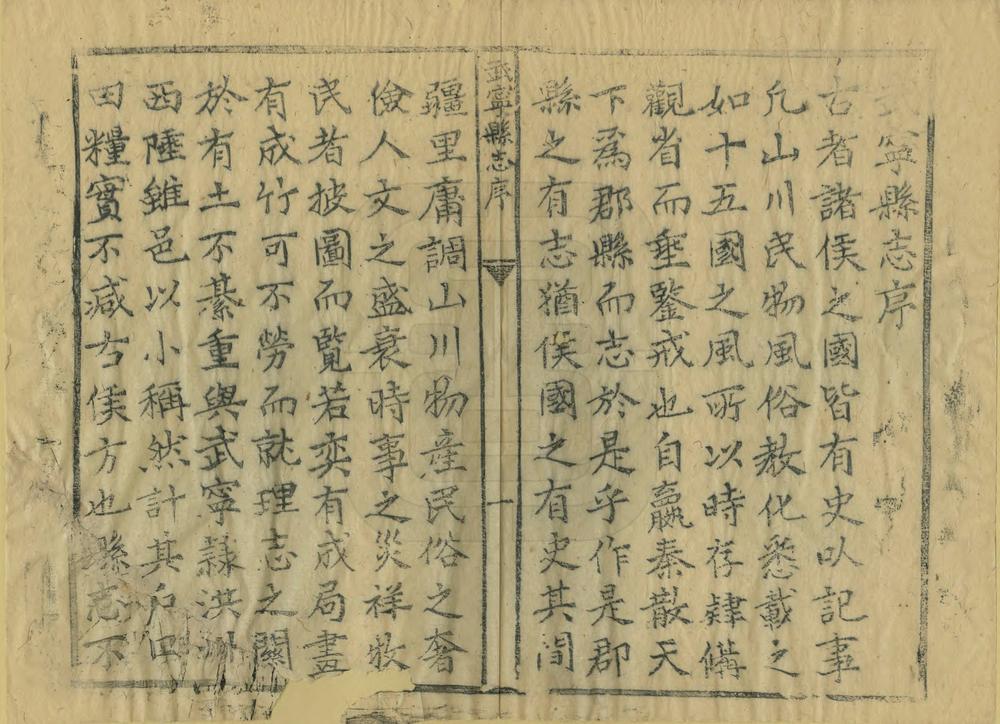 寧縣志序
古者諸侯之國皆有史以記事
凢山川民物風俗敎化悉載之
如十五國之風所以時存肄備
觀省而埀鑒戒也自嬴秦散天
下爲郡縣而志於是乎作是郡
縣之有志猶侯國之有史其間
武寧縣志序
一
疆里庸調山川物產民俗之奢
儉人文之盛衰時事之災祥牧
民者披圖而覽若奕有成局畫
有成竹可不勞而就理志之關
於有土不綦重與武寧隸洪州
西陲雖邑以小稱然計其户口
田糧實不減古侯方也縣志不